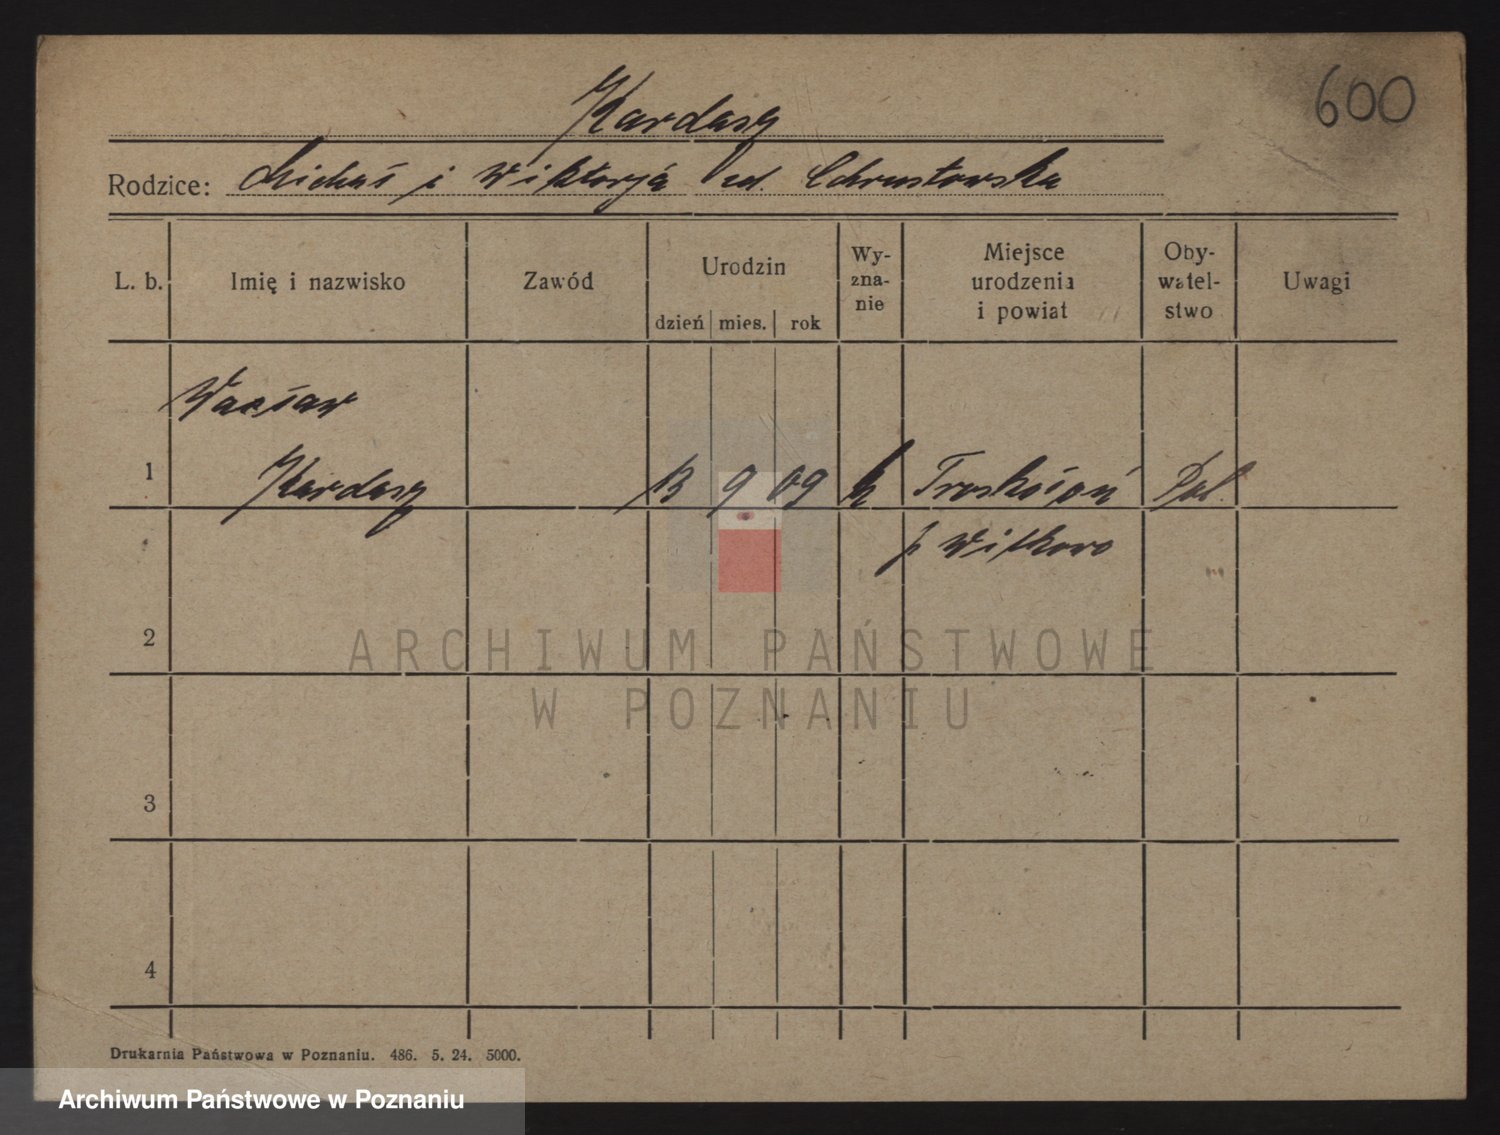 600
Kardasz
Rodzice: Michał i Wiktorja zd. Chrustowska
L. b. Imię i nazwisko Zawód Urodzin dzień mies. rok Wy-zna-nie Miejsce urodzenia i powiat Oby-watel-stwo Uwagi
Wacław
1 Kardasz 13 9 09 k Pol.
p Witkowo
2
3
4
ARCHIWUM PAŃSTWOWE
W POZNANIU
Drukarnia Państwowa w Poznaniu. 486. 5. 24. 5000.
Archiwum Państwowe w Poznaniu